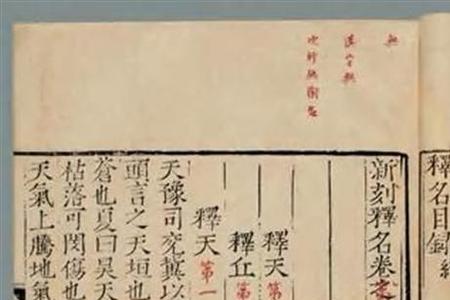 釋名目録
無
新刻釋名卷
釋天第
釋丘第
釋天第一
天豫司兗冀以
頭言之天垣也
蒼也夏曰昊天
枯落可閔傷也
天氣上騰地氣